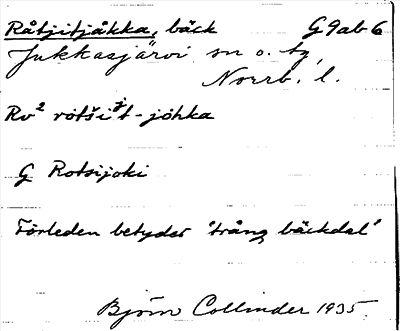 Råtjitjåkka, bäck G 9ab 6
Jukkasjärvi sn o. tg,
Norrb. l.
Rv² rotši ʲt-jȯhka
G Rotsijoki
Förleden betyder 'trång bäckdal'
Björn Collinder 1935.